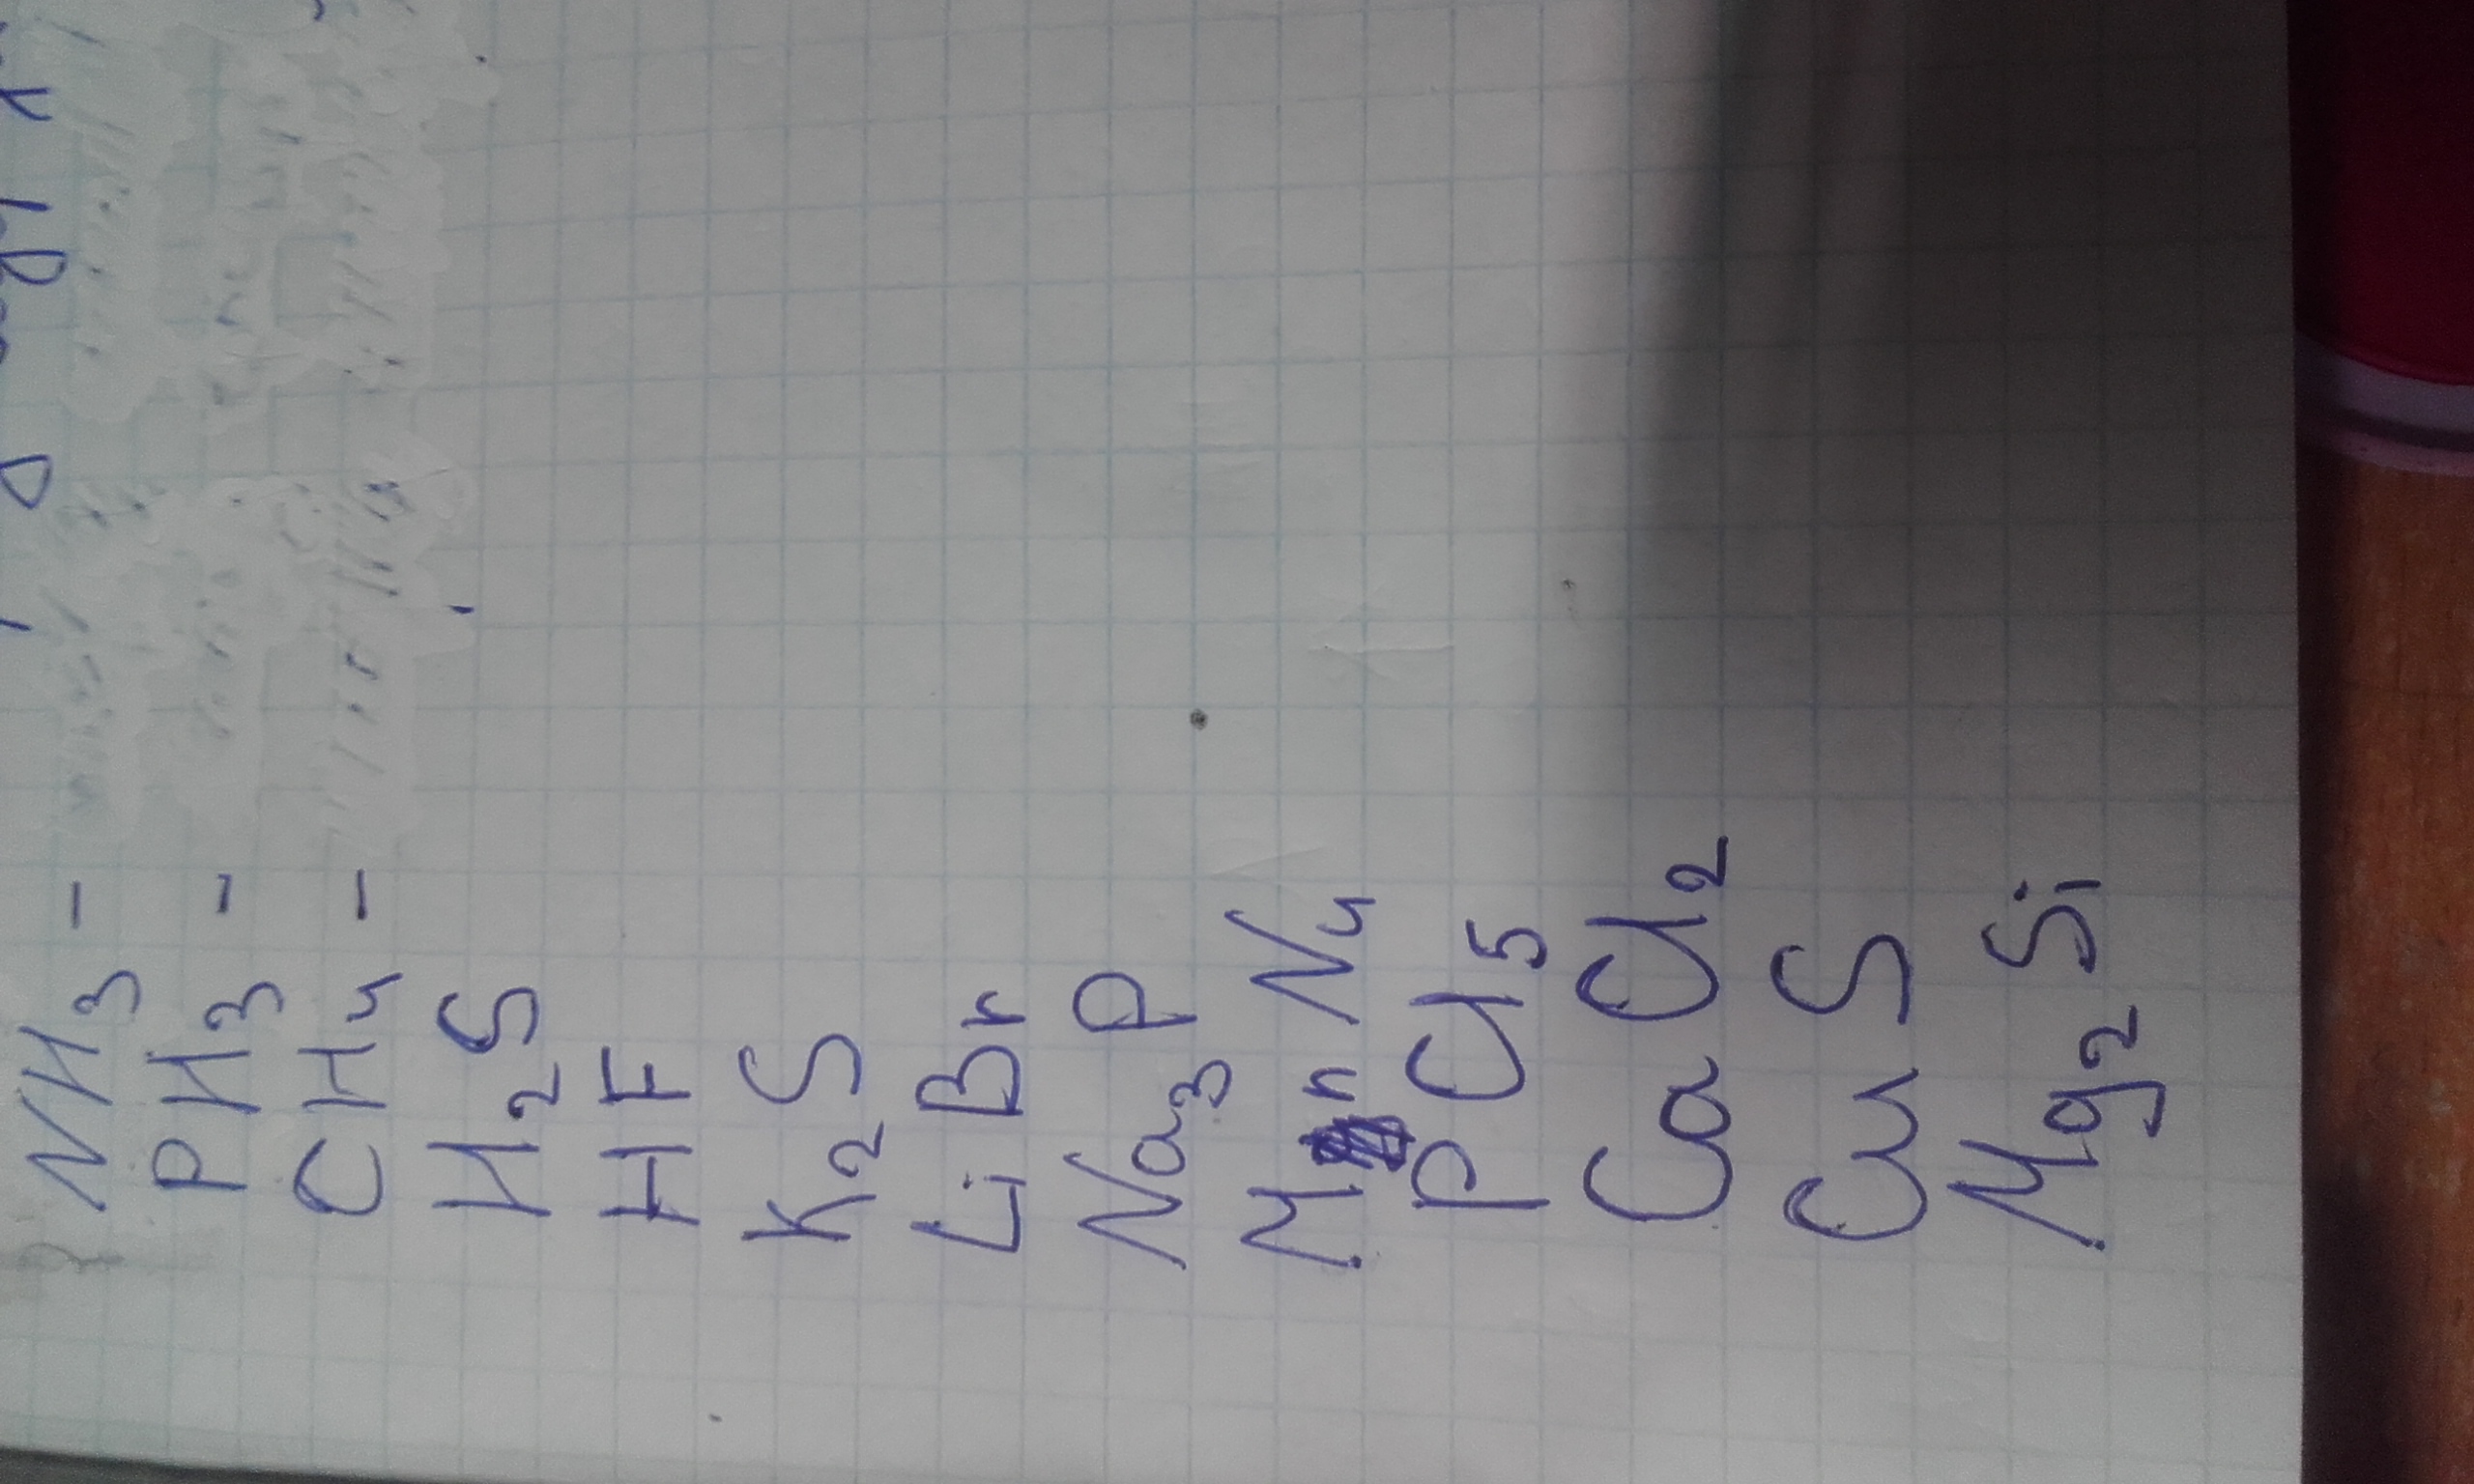 NH3 -
PH3 -
CH4 -
H2S
HF
K2S
LiBr
Na3P
MnN4
PCl5
CaCl2
CuS
Mg2Si